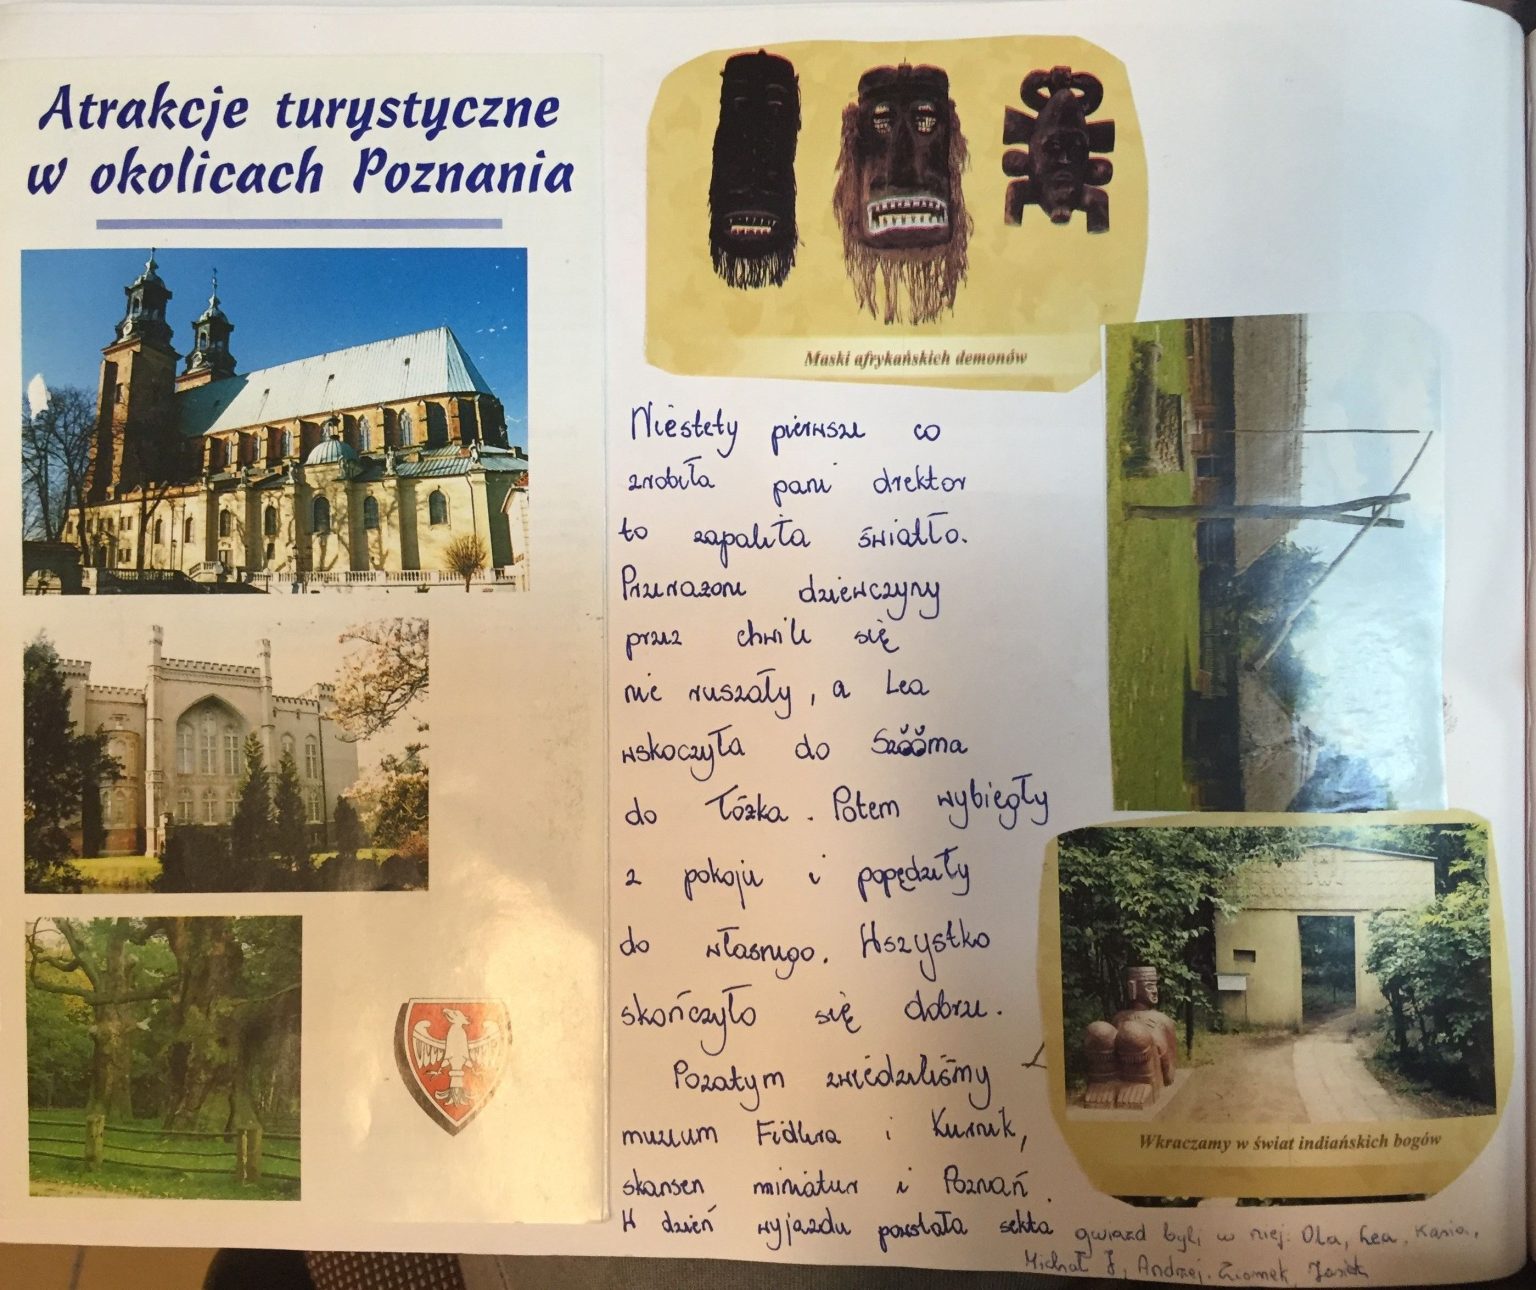 Atrakcje turystyczne
w okolicach Poznania
Maski afrykańskich demonów
Niestety pierwsze co
zrobiła pani drektor
to zapaliła światło.
Przerażone dziewczyny
przez chwile się
nie ruszały, a Lea
wskoczyła do
do łóżka. Potem wybiegły
z pokoju i popędziły
do własnego. Wszystko
skończyło się dobrze.
Pozatym zwiedziliśmy
muzeum Fidlera i Kurnik,
skansen miniatur i Poznań.
W dzień wyjazdu powstała sekta gwiazd byli w niej: Ola, Lea, Kasia,
Michał J, Andrzej, Ziomek,
Wkraczamy w świat indiańskich bogów